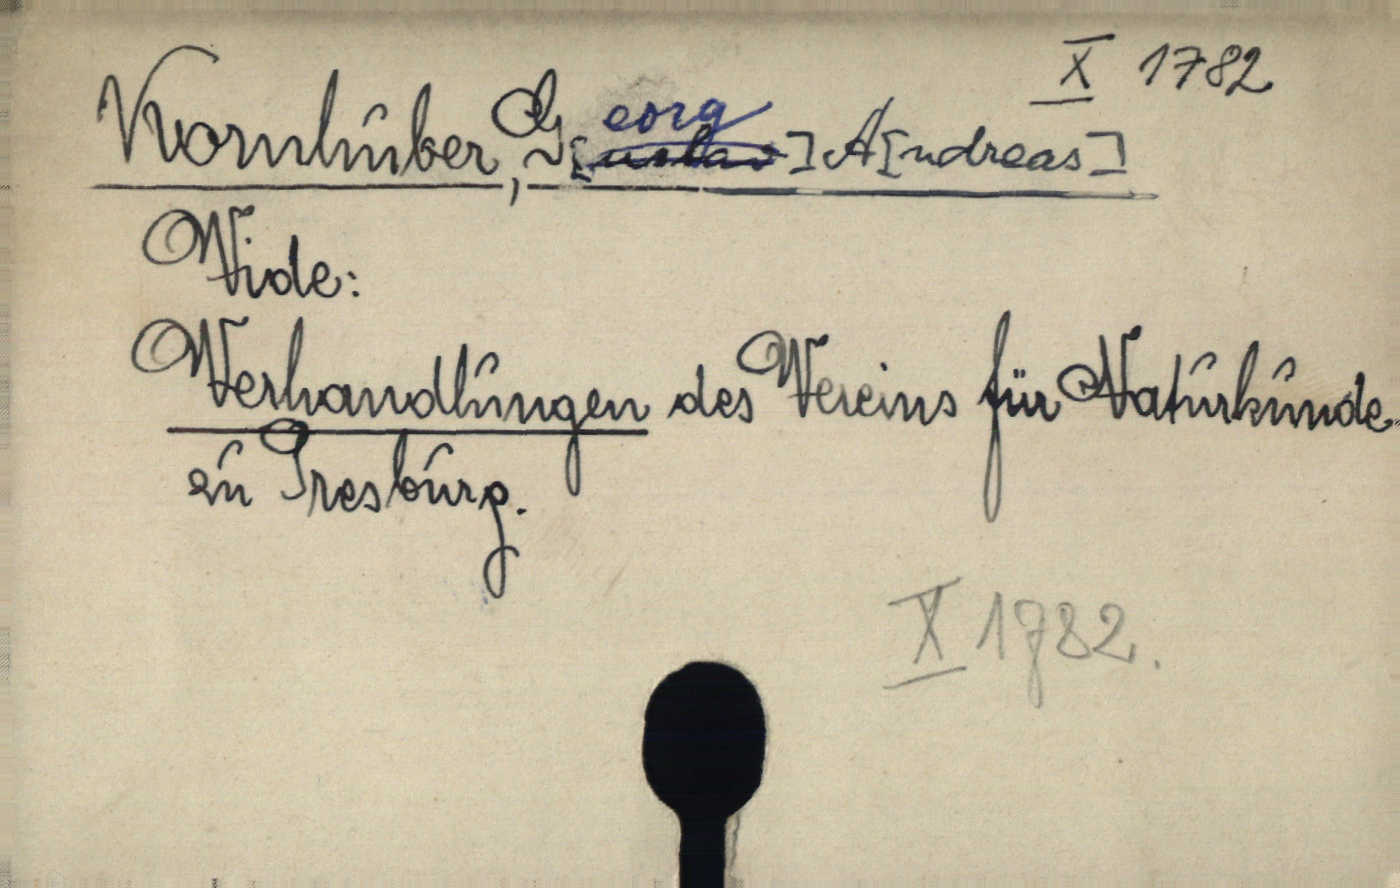 X 1782
Kornhuber, G[eorg] A[ndreas]
Vide:
Verhandlungen des Vereins für Naturkunde
zu Presburg.
X 1782.